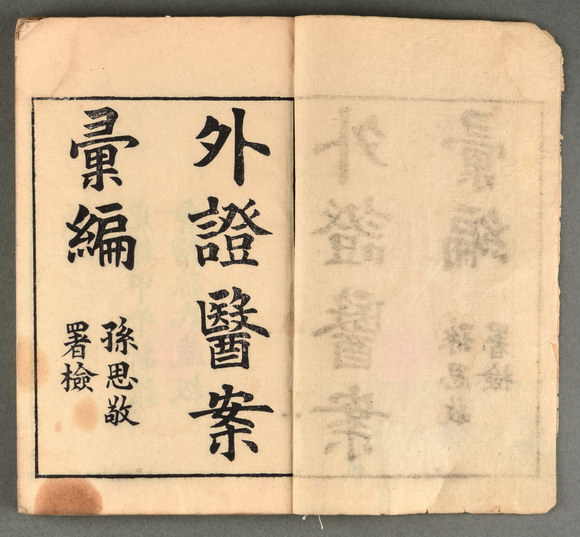 外證醫案
彙編
孫思敬
署檢